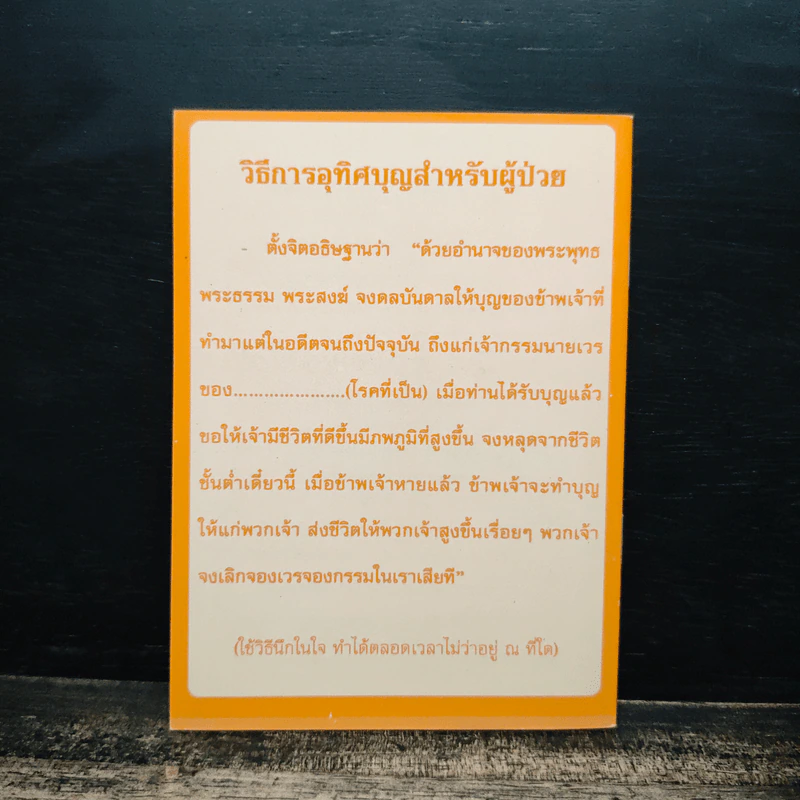 วิธีการอุทิศบุญสำหรับผู้ป่วย
- ตั้งจิตอธิษฐานว่า “ด้วยอำนาจของพระพุทธ
พระธรรม พระสงฆ์ จงดลบันดาลให้บุญของข้าพเจ้าที่
ทำมาแต่ในอดีตจนถึงปัจจุบัน ถึงแก่เจ้ากรรมนายเวร
ของ.....................(โรคที่เป็น) เมื่อท่านได้รับบุญแล้ว
ขอให้เจ้ามีชีวิตที่ดีขึ้นมีภพภูมิที่สูงขึ้น จงหลุดจากชีวิต
ชั้นต่ำเดี๋ยวนี้ เมื่อข้าพเจ้าหายแล้ว ข้าพเจ้าจะทำบุญ
ให้แก่พวกเจ้า ส่งชีวิตให้พวกเจ้าสูงขึ้นเรื่อยๆ พวกเจ้า
จงเลิกจองเวรจองกรรมในเราเสียที”
(ใช้วิธีนึกในใจ ทำได้ตลอดเวลาไม่ว่าอยู่ ณ ที่ใด)